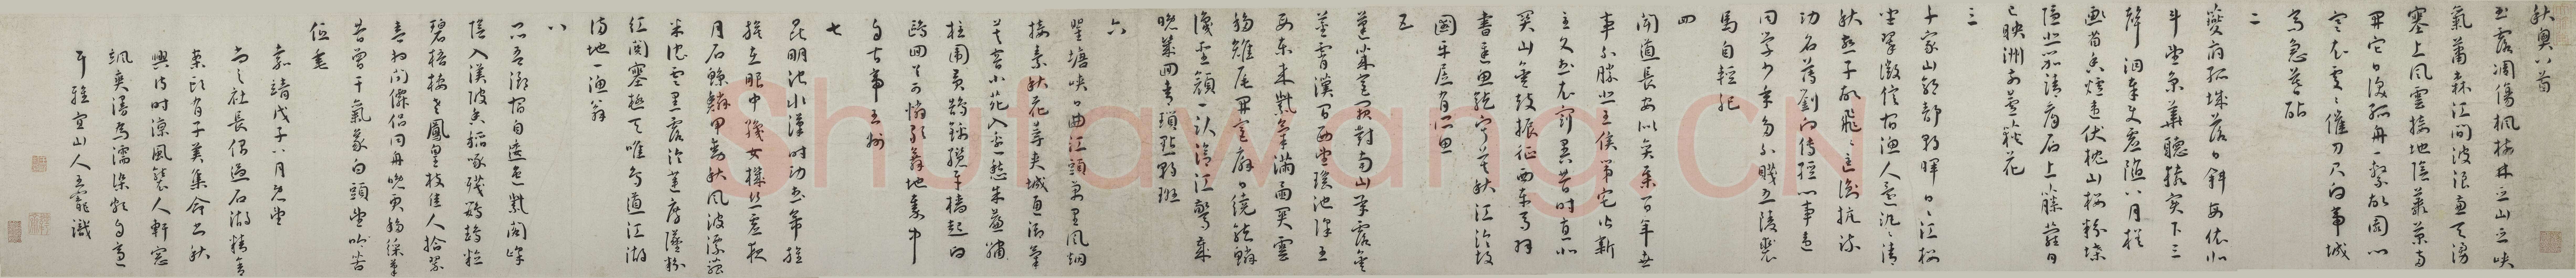 秋興八首
玉露凋傷楓樹林巫山巫峽
氣蕭森江間波浪兼天湧
塞上風雲接地陰叢菊兩
開它日淚孤舟一繫故園心
寒衣處處催刀尺白帝城
高急暮砧
二
夔府孤城落日斜每依北
斗望京華聽猿實下三
聲淚奉使虛隨八月槎
畫省香爐違伏枕山樓粉堞
隱悲笳請看石上藤蘿月
已映洲前蘆荻花
三
千家山郭靜朝暉日日江樓
坐翠微信宿漁人還汎汎清
秋燕子故飛飛匡衡抗疏
功名薄劉向傳經心事違
同學少年多不賤五陵裘
馬自輕肥
四
聞道長安似奕棊百年世
事不勝悲王侯第宅皆新
主文武衣冠異昔時直北
關山金鼓振征西車馬羽
書遲魚龍寂寞秋江冷故
國平居有所思
五
蓬萊宮闕對南山承露金
莖霄漢間西望瑤池降王
母東來紫氣滿函關雲
移雉尾開宮扇日繞龍鱗
識聖顏一臥滄江驚歲
晚幾回青瑣點朝班
六
瞿塘峽口曲江頭萬里風烟
接素秋花萼夾城通御氣
芙蓉小苑入邊愁朱簾繡
柱圍黃鵠錦纜牙檣起白
鷗回首可憐歌舞地秦中
自古帝王州
七
昆明池水漢時功武帝旌
旗在眼中織女機絲虛夜
月石鯨鱗甲動秋風波漂菰
米沉雲黑露冷蓮房墜粉
紅關塞極天唯鳥道江湖
滿地一漁翁
八
昆吾御宿自逶迤紫閣峰
陰入渼陂香稻啄殘鸚鵡粒
碧梧棲老鳳凰枝佳人拾翠
春相問僊侶同舟晚更移綵筆
昔曾干氣象白頭望吟苦
低垂
嘉靖戊子八月既望
尚之社長偶過石湖精舍
案頭有子美集命書秋
興詩時涼風襲人軒窗
颯爽漫爲濡染頗自適
耳雅宜山人王寵識
Shufawang.CN